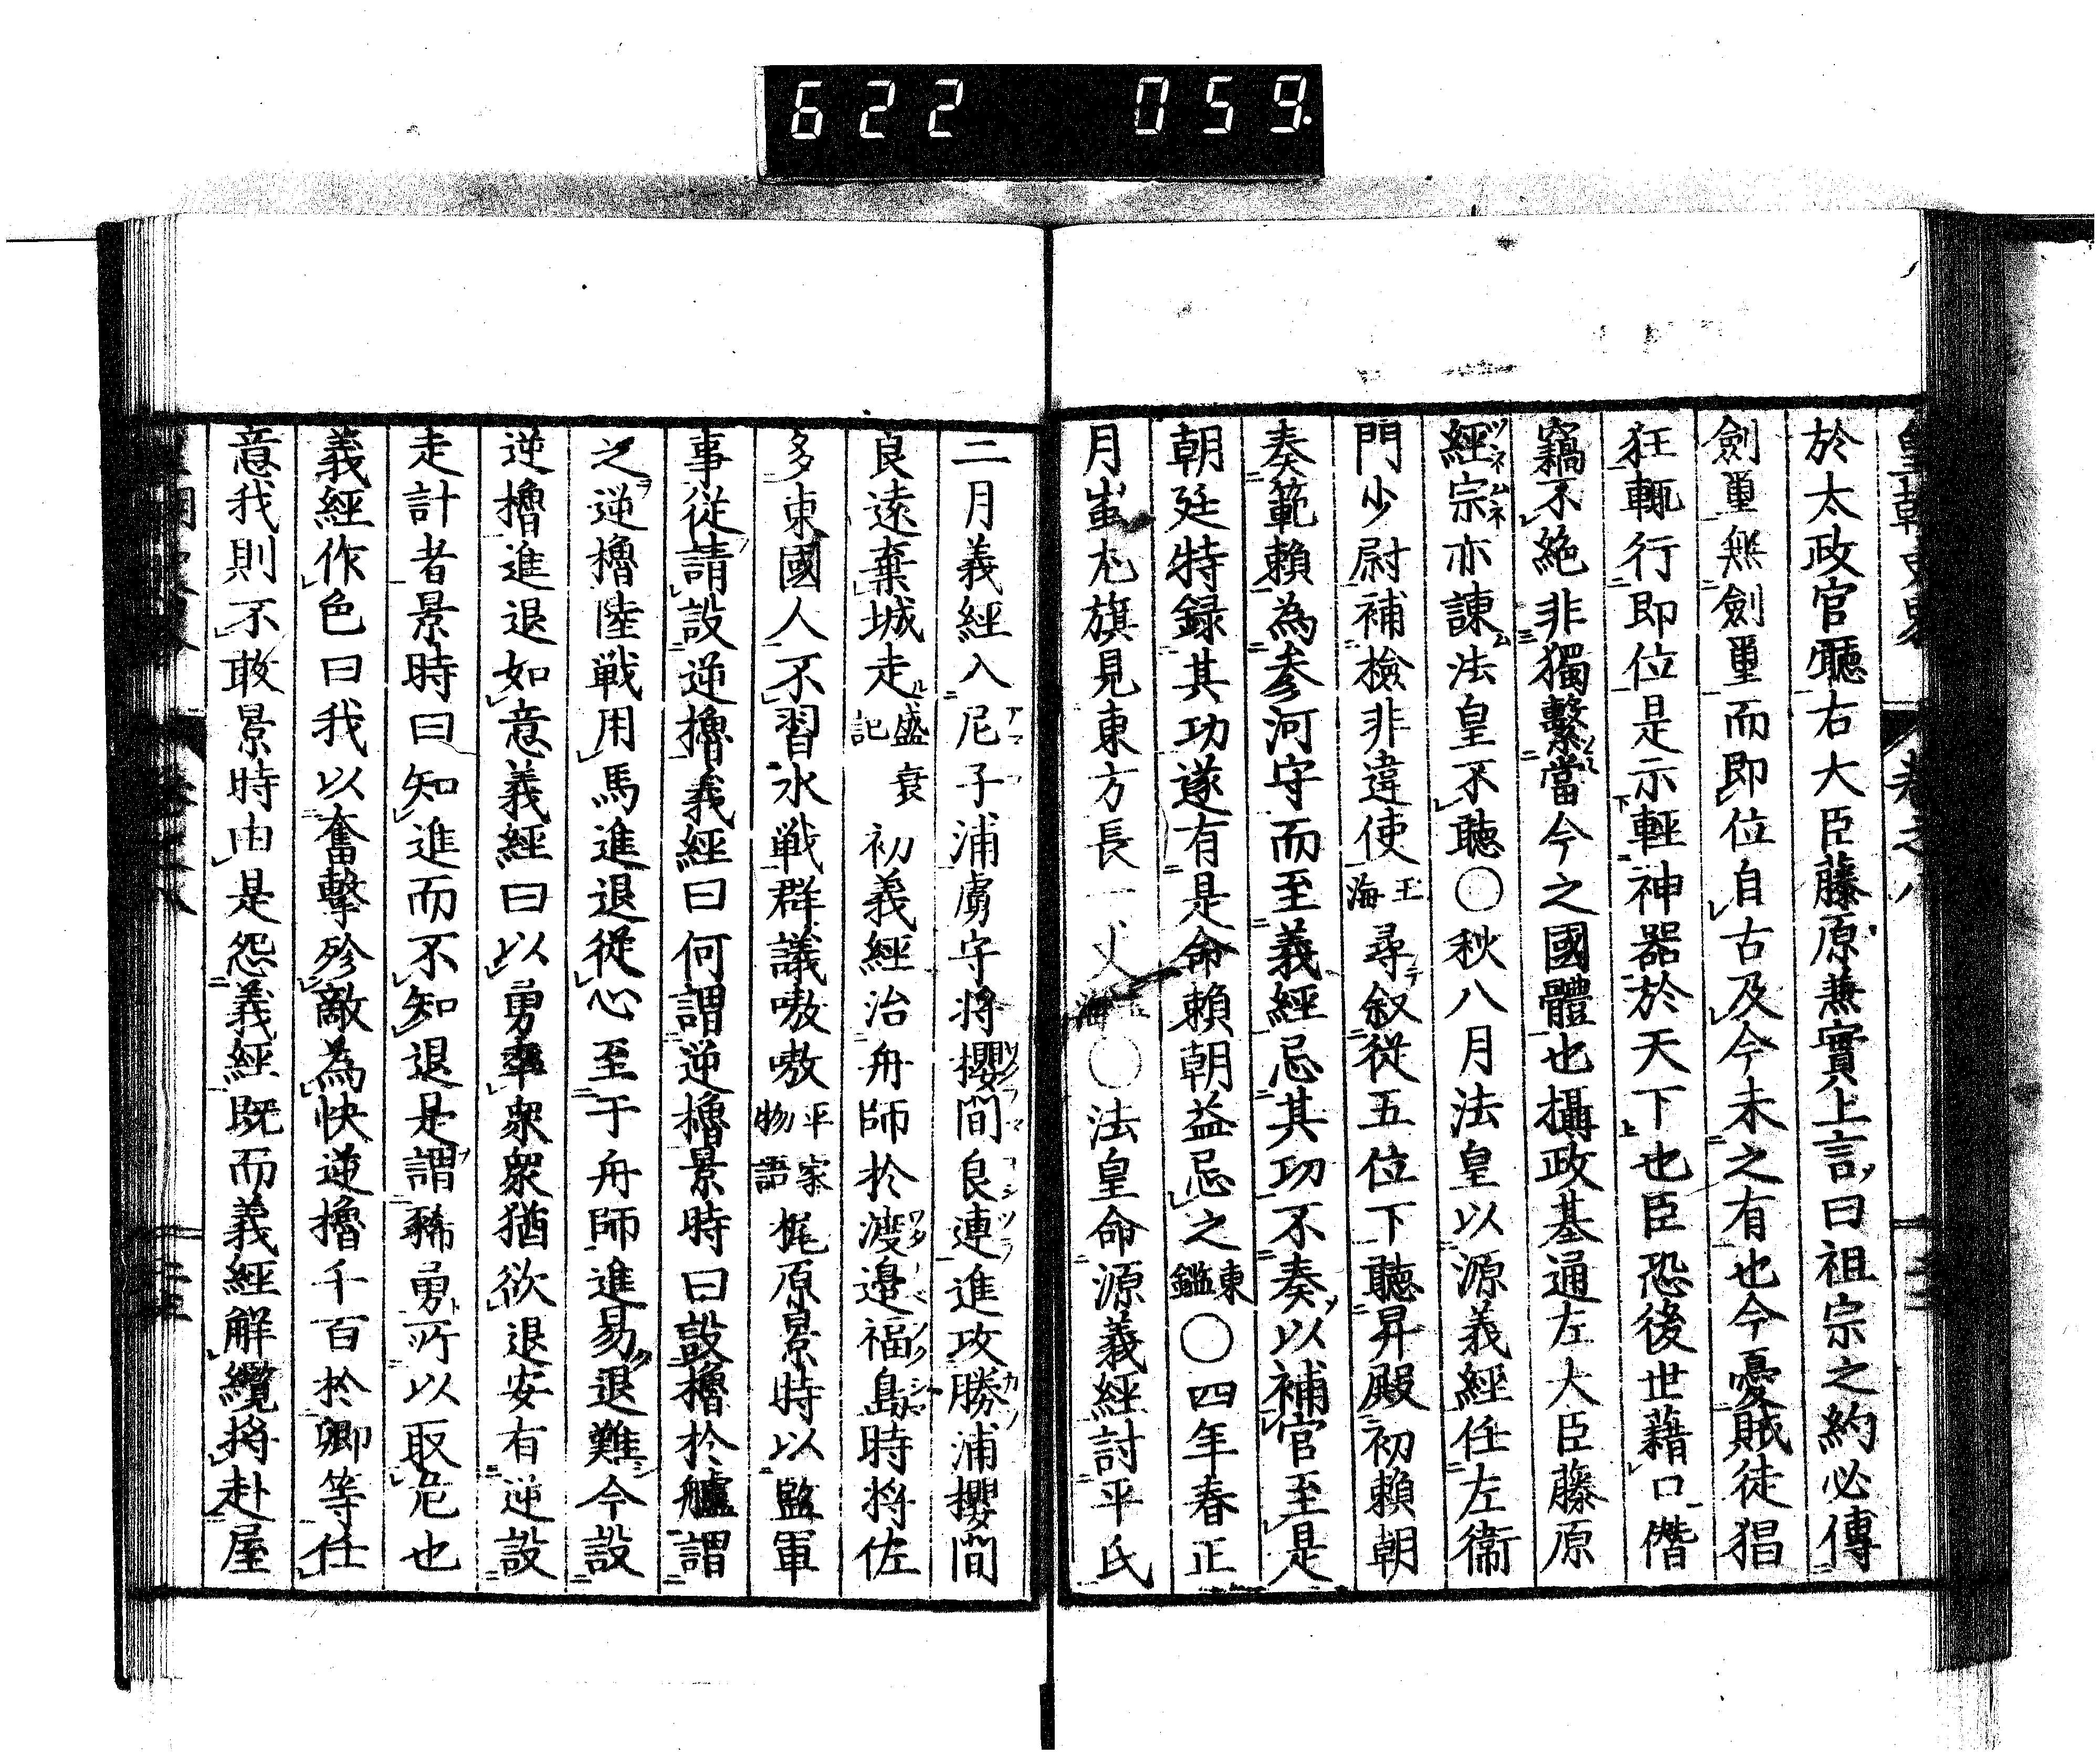 622 059.
於太政官聽右大臣藤原兼實上言曰祖宗之約必傳
劍璽無劍璽而即位自古及今未之有也今憂賊徒猖
狂輒行即位是示輕神器於天下也臣恐後世藉口僭
竊不絶非獨繫當今之國體也攝政基通左大臣藤原
經宗亦諫法皇不聽〇秋八月法皇以源義經任左衞
門少尉補檢非違使玉海尋叙從五位下聽昇殿初賴朝
奏範賴為參河守而至義經忌其功不奏以補官至是
朝廷特録其功遂有是命賴朝益忌之東鑑〇四年春正
月蚩尤旗見東方長一丈玉海〇法皇命源義經討平氏
二月義經入尼子浦虜守将櫻間良連進攻勝浦櫻間
良遠棄城走盛衰記初義經治舟師於渡邉福島時将佐
多東國人不習水戰群議嗷嗷平家物語梶原景時以監軍
事從請設逆櫓義經曰何謂逆櫓景時曰設櫓於艫謂
之逆櫓陸戰用馬進退從心至于舟師進易退難今設
逆櫓進退如意義經曰以勇率衆衆猶欲退安有逆設
走計者景時曰知進而不知退是謂豨勇所以取危也
義經作色曰我以奮擊殄敵為快逆櫓千百於卿等任
意我則不敢景時由是怨義經既而義經解纜将赴屋